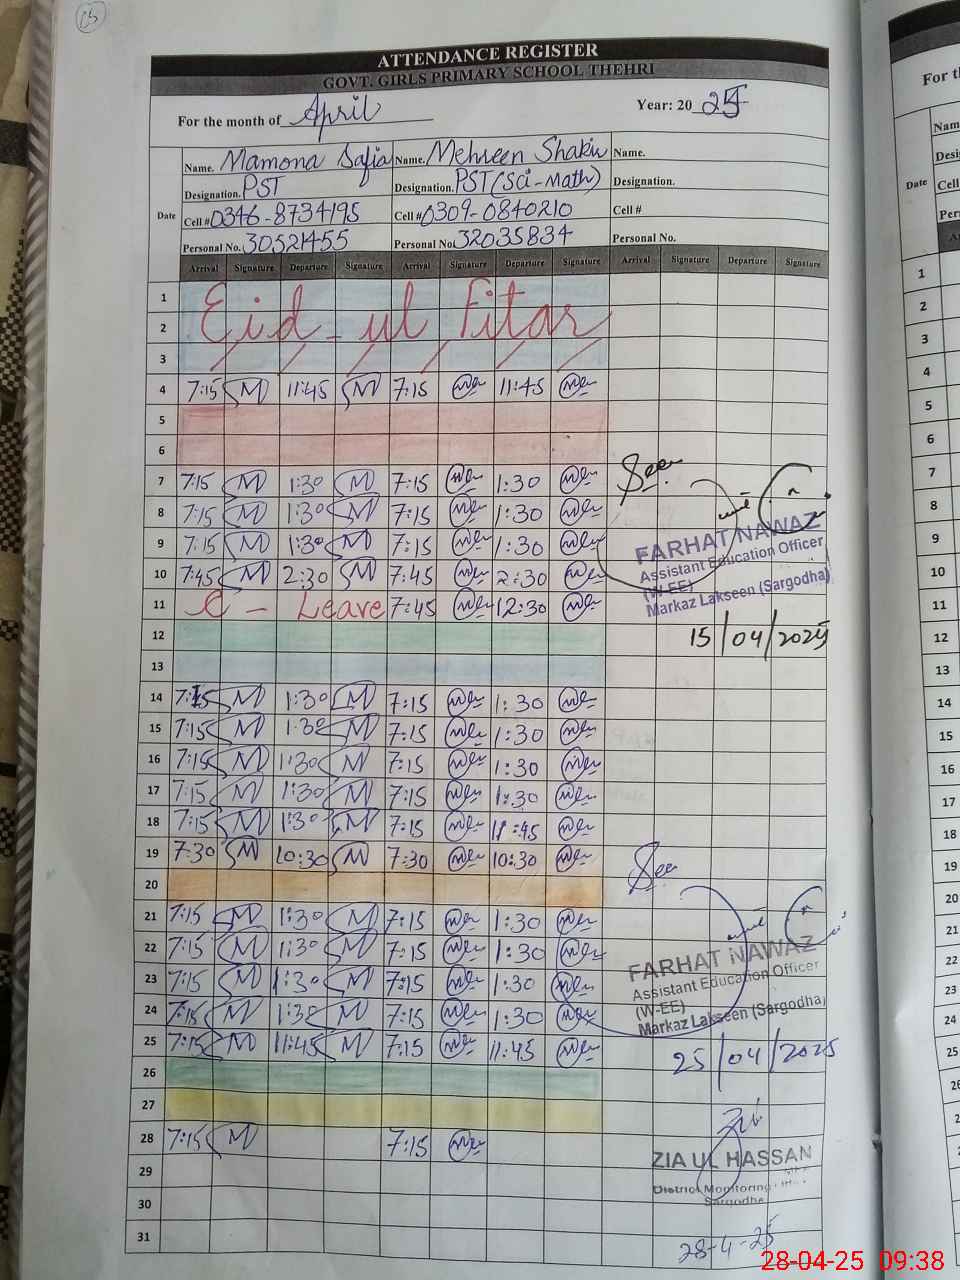 ATTENDANCE REGISTER
GOVT. GIRLS PRIMARY SCHOOL THEHRI
For the month of April Year: 20 25
Name. Mamona Safia Name. Mehreen Shakir Name.
Designation. PST Designation. PST (Sci-Math) Designation.
Date Cell # 0346-8734195 Cell # 0309-0840210 Cell #
Personal No. 30521455 Personal No. 32035834 Personal No.
Arrival Signature Departure Signature Arrival Signature Departure Signature Arrival Signature Departure Signature
1
2 Eid-ul Fitar
3
4 7:15 M 11:45 M 7:15 11:45
5
6
7 7:15 M 1:30 M 7:15 1:30 Seen
8 7:15 M 1:30 M 7:15 1:30
9 7:15 M 1:30 M 7:15 1:30
FARHAT NAWAZ
Assistant Education Officer
10 7:45 M 2:30 M 7:45 2:30
(W-EE)
Markaz Lakseen (Sargodha)
11 C - Leave 7:45 12:30
12 15/04/2025
13
14 7:15 M 1:30 M 7:15 1:30
15 7:15 M 1:30 M 7:15 1:30
16 7:15 M 1:30 M 7:15 1:30
17 7:15 M 1:30 M 7:15 1:30
18 7:15 M 1:30 M 7:15 11:45
19 7:30 M 10:30 M 7:30 10:30 Seen
20
21 7:15 M 1:30 M 7:15 1:30
22 7:15 M 1:30 M 7:15 1:30
FARHAT NAWAZ
Assistant Education Officer
23 7:15 M 1:30 M 7:15 1:30
(W-EE)
Markaz Lakseen (Sargodha)
24 7:15 M 1:30 M 7:15 1:30
25 7:15 M 11:45 M 7:15 11:45 25/04/2025
26
27
28 7:15 M 7:15
ZIA UL HASSAN
29
District Monitoring
Sargodha
30
31 28-4-25
For th
Nam
Desi
Date Cell
Per
A
1
2
3
4
5
6
7
8
9
10
11
12
13
14
15
16
17
18
19
20
21
22
23
24
25
26
28-04-25 09:38